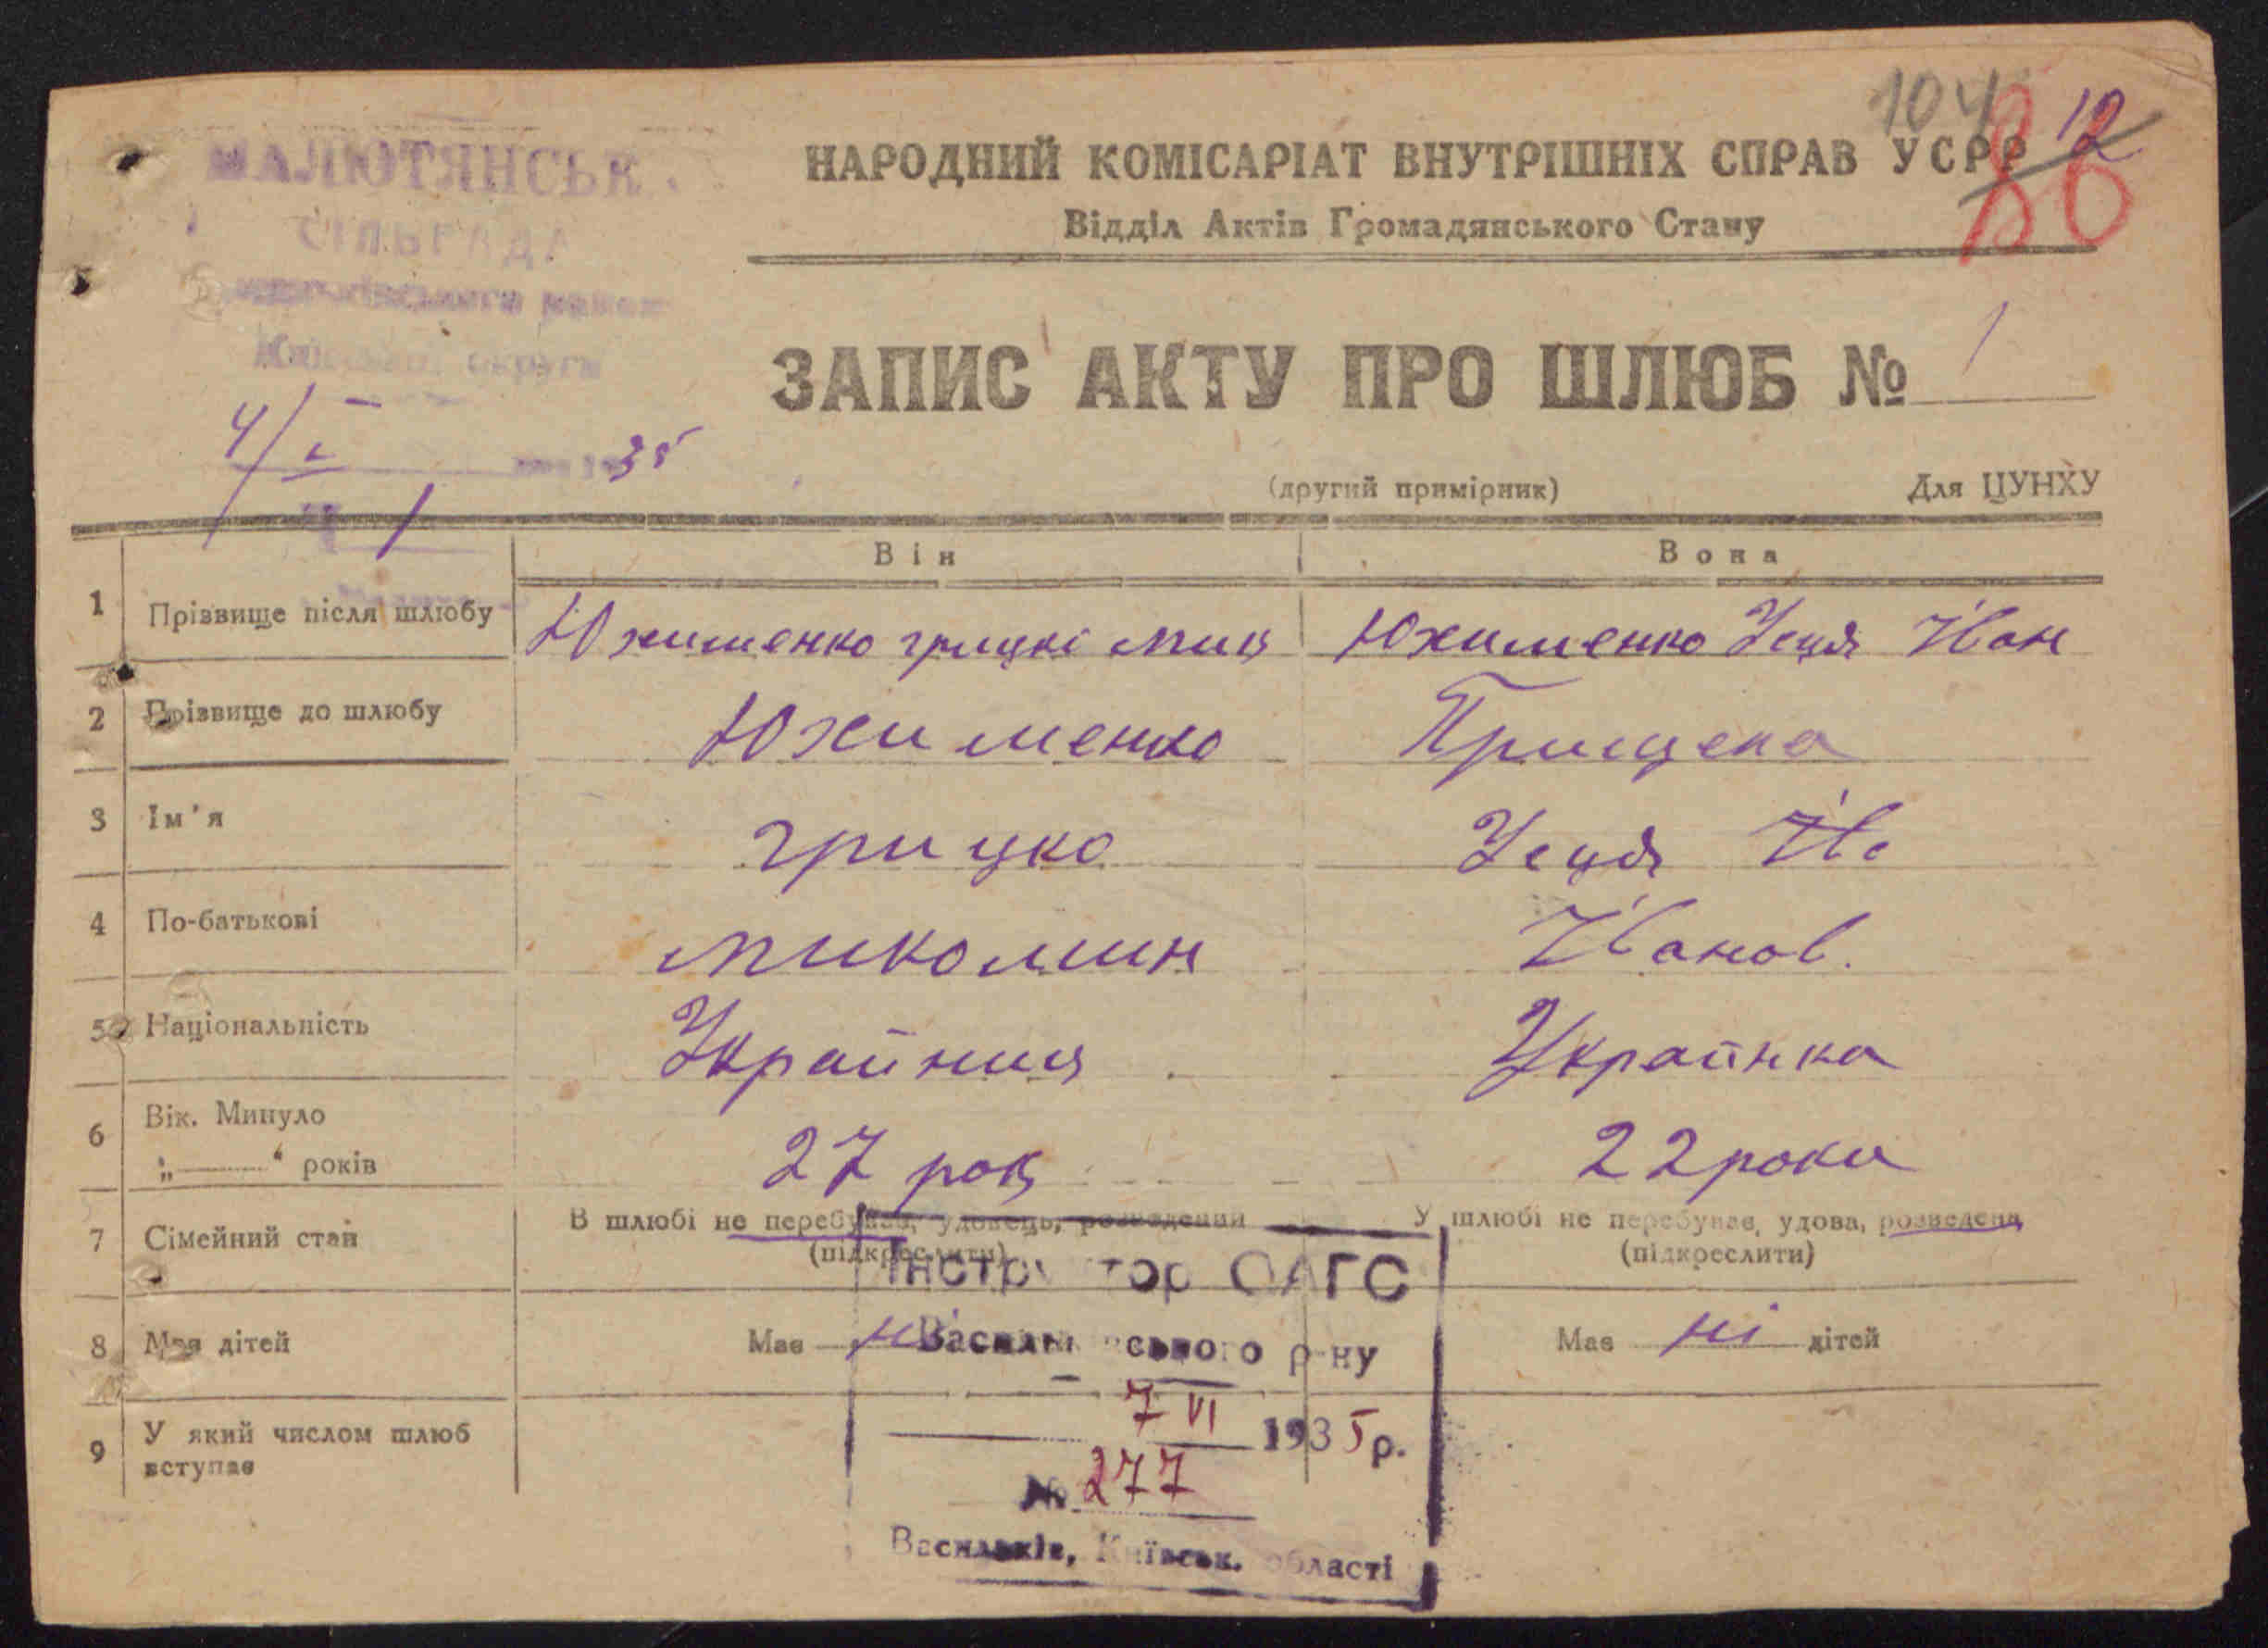 104
12
86
МАЛЮТЯНСЬК.
СІЛЬРАДА
округи
НАРОДНИЙ КОМІСАРІАТ ВНУТРІШНІХ СПРАВ УСРР
Відділ Актів Громадянського Стану
ЗАПИС АКТУ ПРО ШЛЮБ № 1
4/І 35
1
(другий примірник) Для ЦУНХУ
Він Вона
1 Прізвище після шлюбу Юхименко грицкі мик Юхименко Усця Иван
2 Прізвище до шлюбу Юхименко Прищепа
3 Ім'я грицко Усця Ив
4 По-батькові миколин Иванов.
5 Національність Україниц Українка
6 Вік. Минуло
„ — “ років 27 рок 22 роки
7 Сімейний стан В шлюбі не перебував, удовець, розведений У шлюбі не перебував, удова, розведена
(підкреслити) (підкреслити)
Інструктор ОАГС
8 Мая дітей Має ні Має ні дітей
Васильківського р-ну
7 VI 1935 р.
9 У який числом шлюб
вступає
№ 277
Васильків, Київськ. області